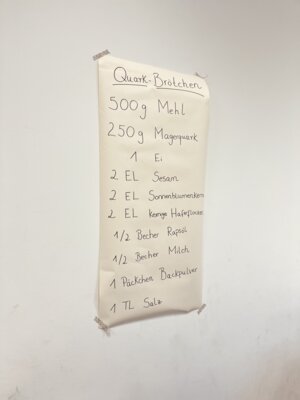 Quark-Brötchen
500g Mehl
250g Magerquark
1 Ei
2 EL Sesam
2 EL Sonnenblumenkern
2 EL kernige Haferflocken
1/2 Becher Rapsöl
1/2 Becher Milch
1 Päckchen Backpulver
1 TL Salz